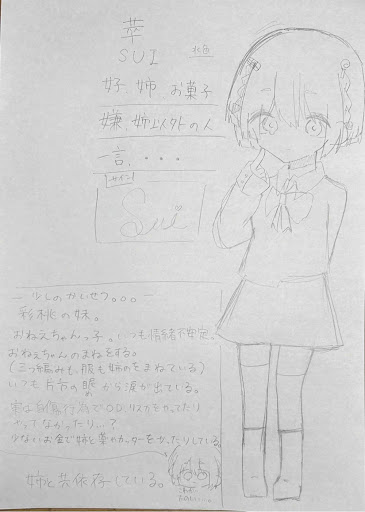 萃
SUI
好、姉 お菓子
嫌、姉以外の人
一言、・・・
サイン
Sui
― 少しのかいせつ。。。―
彩桃の妹。
おねえちゃんっ子。いつも情緒不安定。
おねえちゃんのまねをする。
(三つ編みも、服も姉のをまねている)
いつも片方の眼から涙が出ている。
実は自傷行為でOD、リスカをやってたり
やってなかったり…?
少ないお金で姉と薬やカッターを買ったりしている
姉と共依存している。